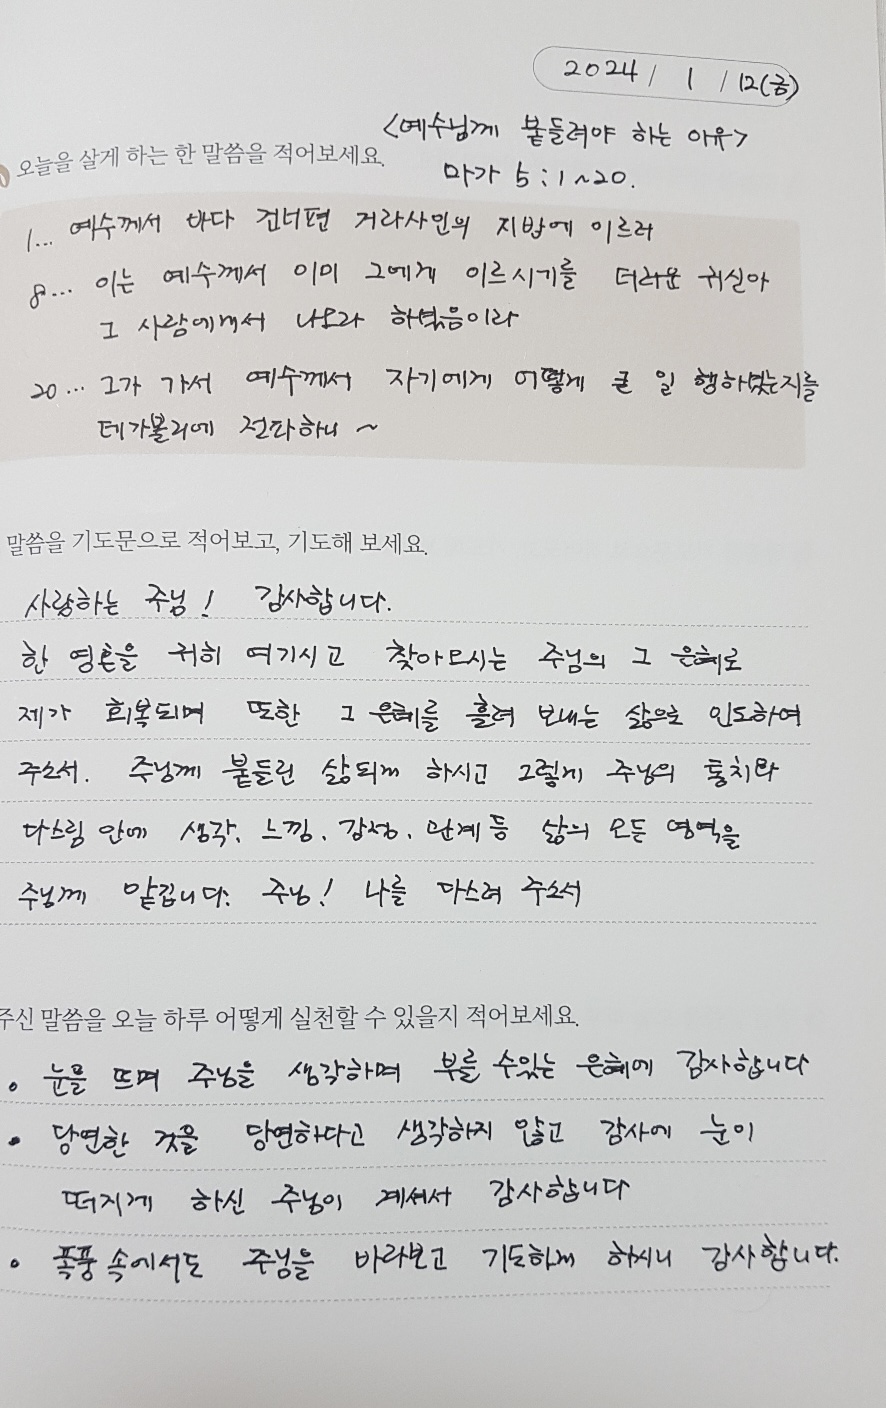 2024 / 1 / 12(금)
<예수님께 붙들려야 하는 이유>
오늘을 살게 하는 한 말씀을 적어보세요.
마가 5 : 1 ~ 20.
1... 예수께서 바다 건너편 거라사인의 지방에 이르러
8... 이는 예수께서 이미 그에게 이르시기를 더러운 귀신아
그 사람에게서 나오라 하셨음이라
20... 그가 가서 예수께서 자기에게 어떻게 큰 일 행하셨는지를
데가볼리에 전파하니 ~
말씀을 기도문으로 적어보고, 기도해 보세요.
사랑하는 주님! 감사합니다.
한 영혼을 귀히 여기시고 찾아오시는 주님의 그 은혜로
제가 회복되며 또한 그 은혜를 흘려 보내는 삶으로 인도하여
주소서. 주님께 붙들린 삶되게 하시고 그렇게 주님의 통치와
다스림 안에 생각, 느낌, 감정, 관계 등 삶의 모든 영역을
주님께 맡깁니다. 주님! 나를 다스려 주소서
주신 말씀을 오늘 하루 어떻게 실천할 수 있을지 적어보세요.
• 눈을 뜨며 주님을 생각하며 부를 수있는 은혜에 감사합니다
• 당연한 것을 당연하다고 생각하지 않고 감사에 눈이
떠지게 하신 주님이 계셔서 감사합니다
• 폭풍 속에서도 주님을 바라보고 기도하게 하시니 감사합니다.